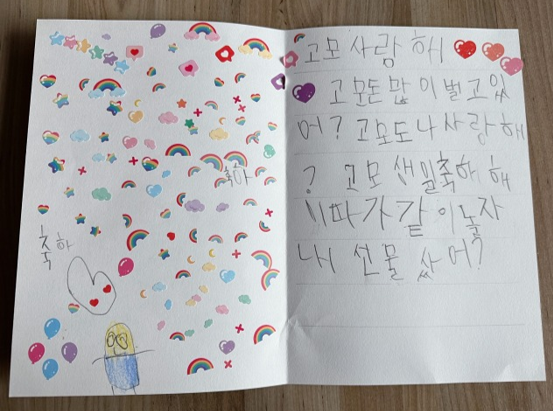 축하
축하
고모 사람 해
고모돈 많이 벌고 있
어? 고모도 나 사랑 해
? 고모 생일축해 해
이따가 같이 놓자
내 선물 쌌어?